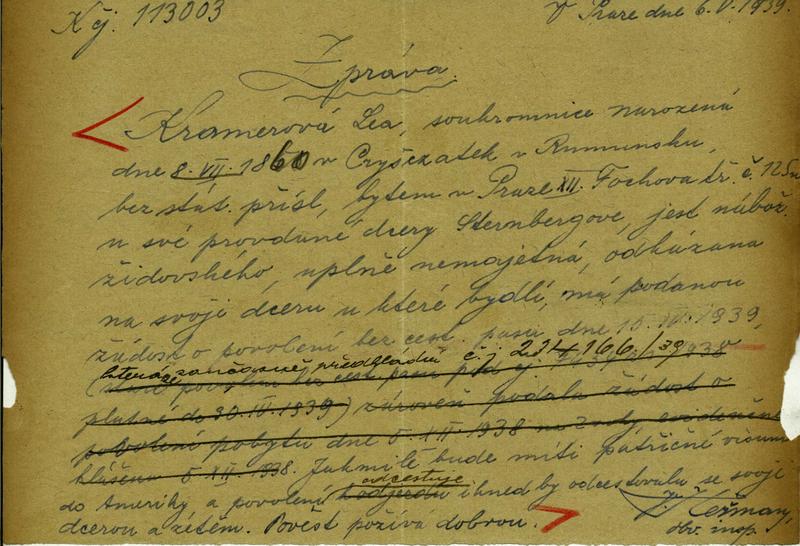 K čj. 113003
V Praze dne 6.V.1939.
Zpráva.
Kramerová Lea, soukromnice narozená
dne 8. VII. 1860 v Cryščzatek v Rumunsku,
bez stát. přísl, bytem v Praze XII. Fochova tř. č. 125n
u své provdané dcery Sternbergové, jest nábož.
židovského, uplně nemajetná, odkázana
na svoji dceru u které bydlí, má podanou
žádost o povolení bez cest. pasu dne 15. IV. 1939,
která zároveň předkládá č. j. 224166/39
povolení bez cest. pasu 1938
platné do 30. IV. 1939) zároveň podala žádost o
povolení pobytu dne 5. XII. 1938 na evidenční
hlášenu 5. XII. 1938. Jakmile bude míti patřičné visum
odcestuje
do Ameriky, a povolení k odjezdu ihned by odcestovala se svojí
dcerou a zětěm. Pověst požívá dobrou.
obv. insp.